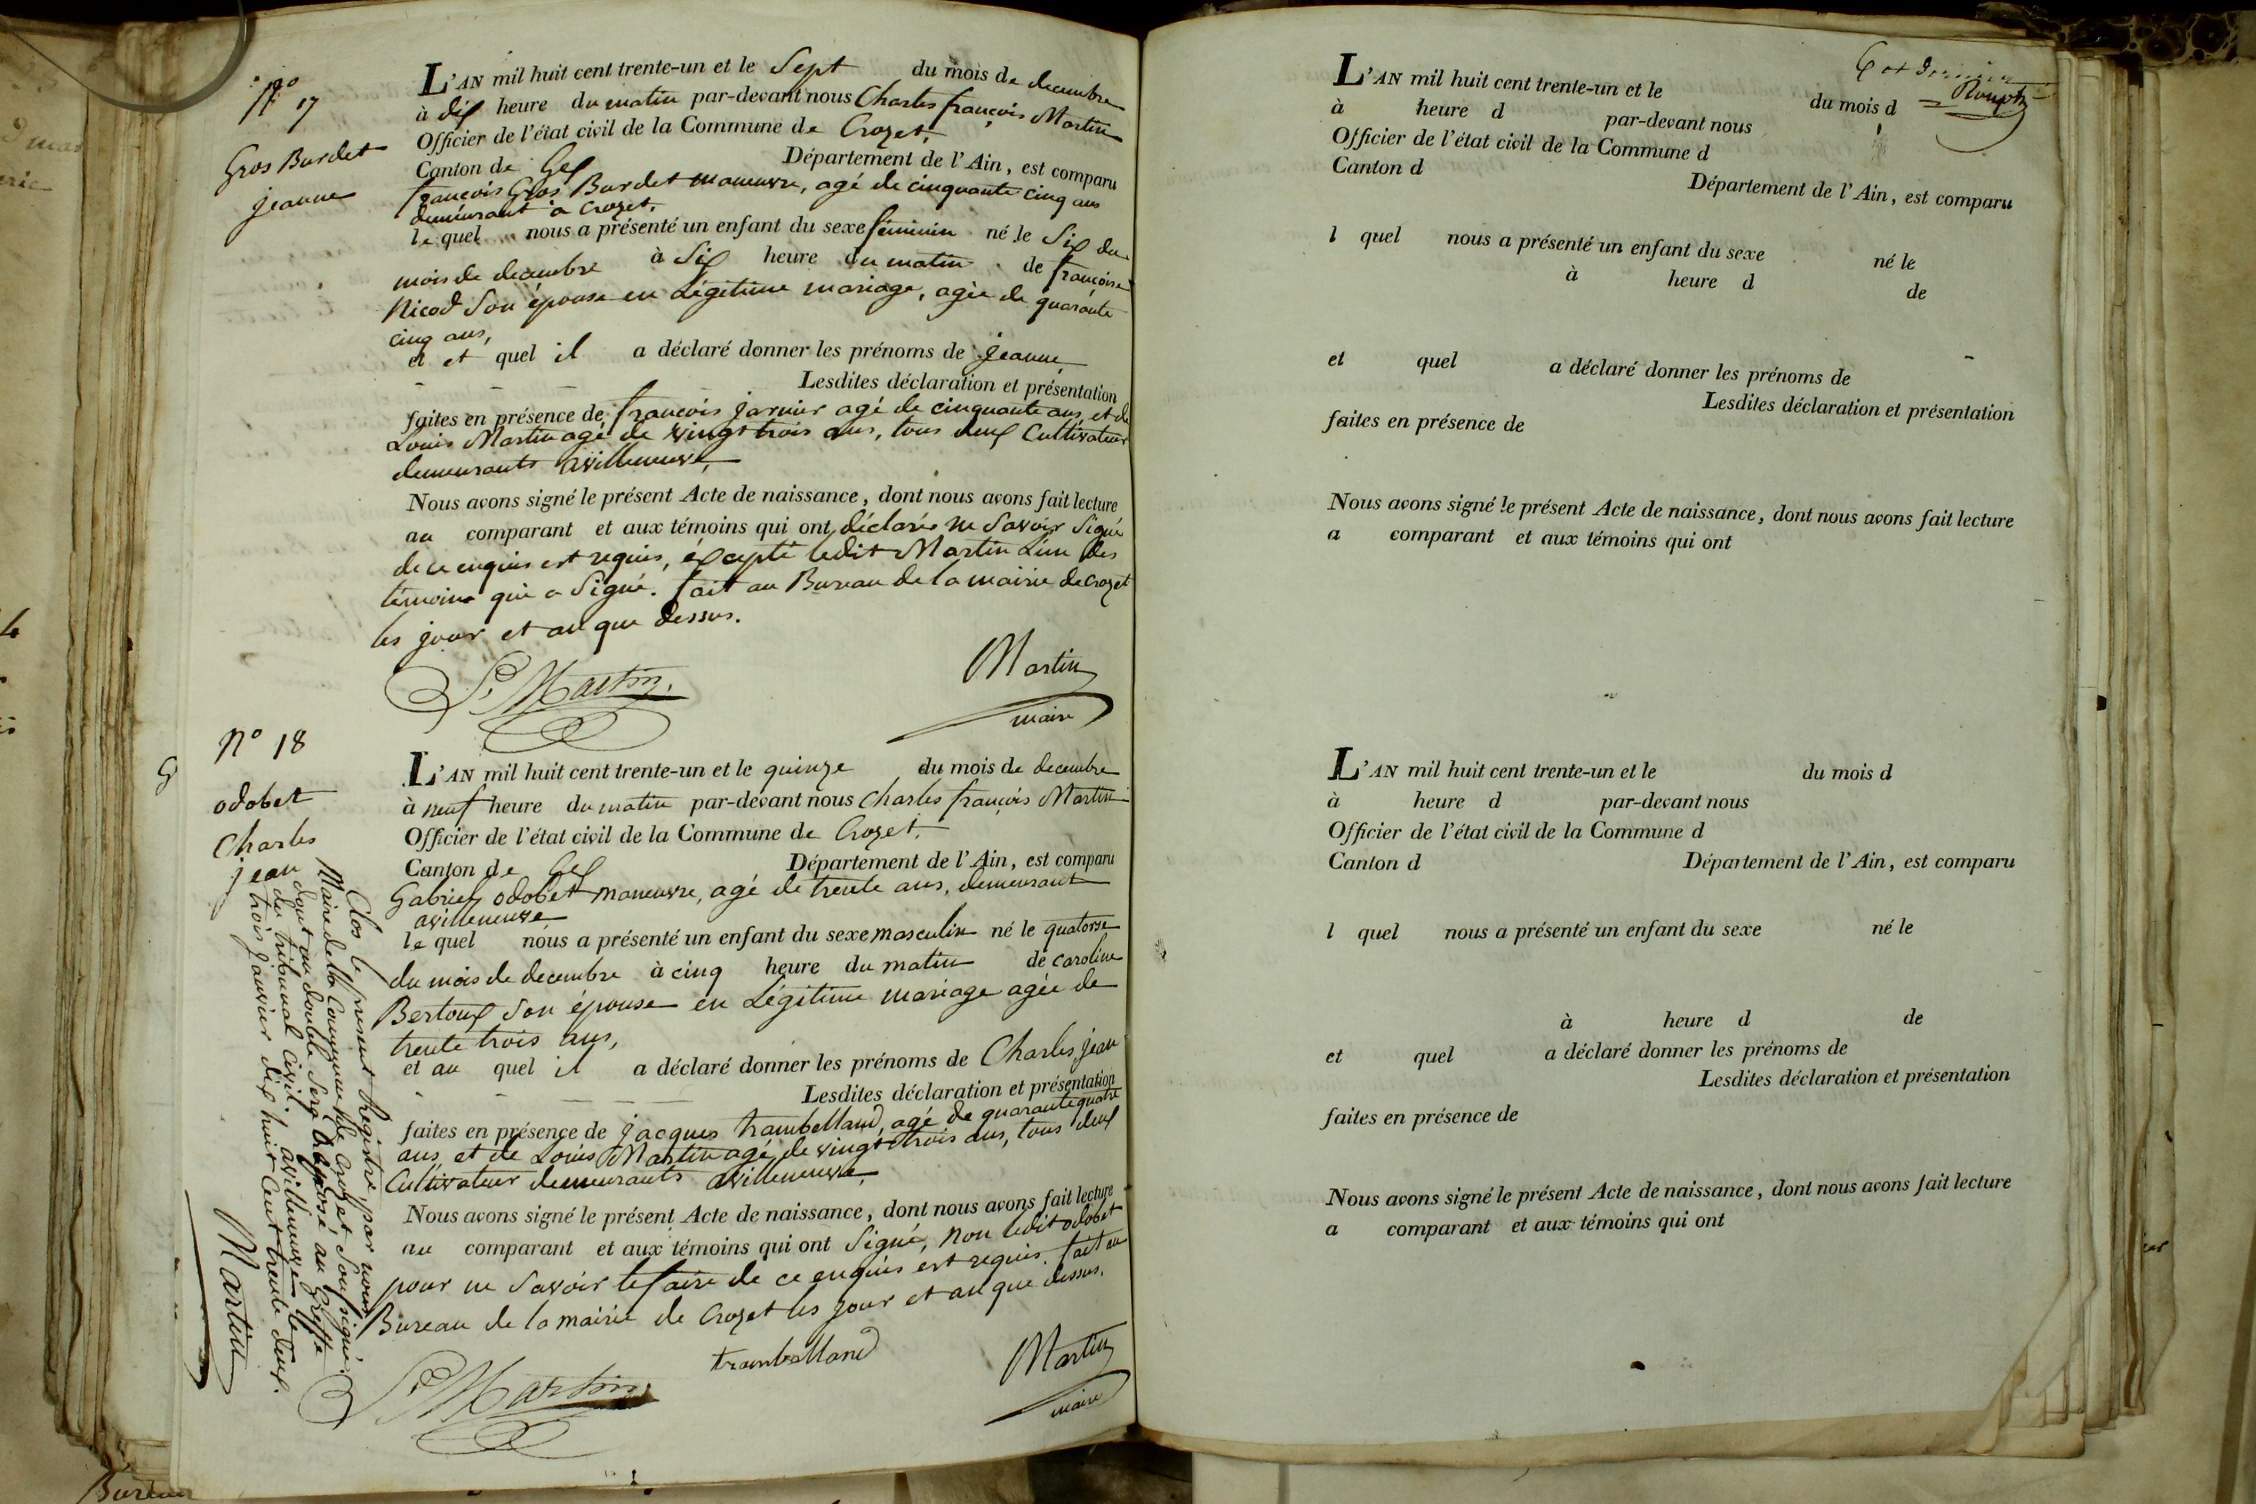 N° 17
Gros Burdet
jeanne
L'AN mil huit cent trente-un et le Sept du mois de decembre
à dix heure du matin par-devant nous Charles françois Martin
Officier de l'état civil de la Commune de Crozet,
Canton de Gex Département de l'Ain, est comparu
françois Gros Burdet maneuvre, agé de cinquante cinq ans
demeurant a Crozet,
le quel nous a présenté un enfant du sexe féminin né le Six du
mois de decembre à Six heure du matin de françoise
Nicod Son épouse en Légitime mariage, agée de quarante
cinq ans,
et et quel il a déclaré donner les prénoms de jeanne,
Lesdites déclaration et présentation
faites en présence de françois jarnier agé de cinquante ans, et de
Louis Martin agé de vingt trois ans, tous deux Cultivateur
demeurants avilleneuve,
Nous avons signé le présent Acte de naissance, dont nous avons fait lecture
au comparant et aux témoins qui ont déclarés ne Savoir Signé
de ce enquis et requis, éxcepté ledit Martin L'un des
témoins qui a Signé. fait au Bureau de la mairie de Crozet
les jour et an que dessus.
Martin
Martin
maire
N° 18
odobet
Charles
jean
L'AN mil huit cent trente-un et le quinze du mois de decembre
à neuf heure du matin par-devant nous Charles françois Martin
Officier de l'état civil de la Commune de Crozet,
Canton de Gex Département de l'Ain, est comparu
Gabriel odobet maneuvre, agé de trente ans, demeurant
avilleneuve
le quel nous a présenté un enfant du sexe masculin né le quatorze
du mois de decembre à cinq heure du matin de caroline
Bertoux Son épouse en Légitime mariage agée de
trente trois ans,
et au quel il a déclaré donner les prénoms de Charles jean
Lesdites déclaration et présentation
faites en présence de jacques trambelland, agé de quarante quatre
ans, et de Louis Martin agé de vingt trois ans, tous deux
Cultivateur demeurants avilleneuve,
Nous avons signé le présent Acte de naissance, dont nous avons fait lecture
au comparant et aux témoins qui ont Signé, non ledit odobet
pour ne Savoir le faire de ce enquis et requis. fait au
Bureau de la mairie de Crozet les jour et an que dessus.
Martin
trambelland
Martin
maire
Clos le present Registre par nous
Maire de la Commune de Crozet Soussigné
dont au double Sera déposé au Greffe
du tribunal civil. avilleneuve le
trois janvier dix huit Cent trente deux.
Martin
L'AN mil huit cent trente-un et le du mois d
à heure d par-devant nous
Officier de l'état civil de la Commune d
Canton d Département de l'Ain, est comparu
l quel nous a présenté un enfant du sexe né le
à heure d de
et quel a déclaré donner les prénoms de
Lesdites déclaration et présentation
faites en présence de
Nous avons signé le présent Acte de naissance, dont nous avons fait lecture
a comparant et aux témoins qui ont
L'AN mil huit cent trente-un et le du mois d
à heure d par-devant nous
Officier de l'état civil de la Commune d
Canton d Département de l'Ain, est comparu
l quel nous a présenté un enfant du sexe né le
à heure d de
et quel a déclaré donner les prénoms de
Lesdites déclaration et présentation
faites en présence de
Nous avons signé le présent Acte de naissance, dont nous avons fait lecture
a comparant et aux témoins qui ont